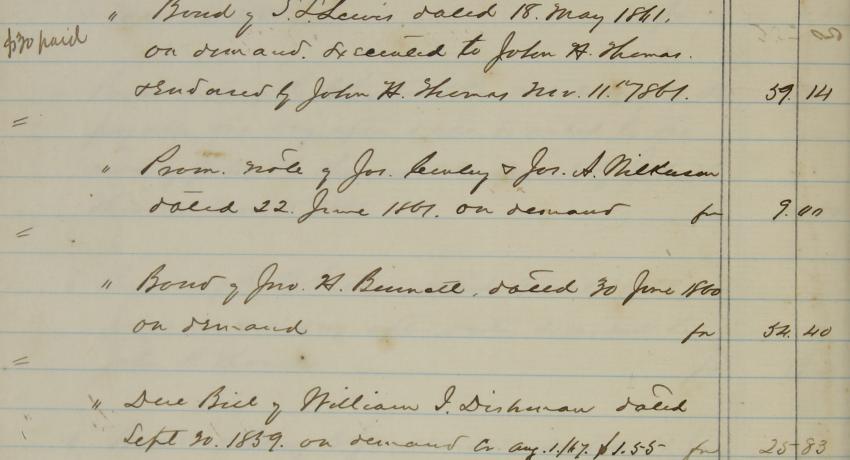 " Bond of S. L Lewis dated 18. May 1861.
$30 paid
on demand. Executed to John H. Thomas.
& Endorsed by John H. Thomas Nov. 11th 1861. 59. 14
=
" Prom. note of Jos. & Jos. A. Wilkerson
dated 22. June 1861. on demand for 9. 00
=
" Bond of Jno. H. Bennett, dated 30 June 1860
on demand for 54. 40
=
" Due Bill of William J. Dishman dated
Sept 20. 1859. on demand Cr Aug. 1. /67. $1.55 for 25 83